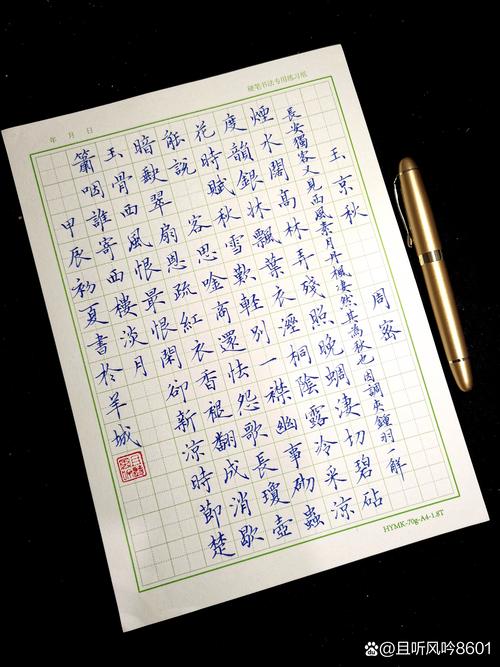 硬笔书法专用练习纸
年 月 日
玉京秋
周密
長安獨客又見西風素月丹楓淒然其為秋也因調夾鍾羽一解
煙水闊高林弄殘照晚蜩淒切碧砧
度韻銀牀飄葉衣溼桐陰露冷采涼
花時賦秋雪歎輕別一襟幽事砌蟲
能說 客思唫商還怯怨歌長瓊壺
暗缺翠扇恩疏紅衣香褪翻成消歇
玉骨西風恨最恨閑卻新涼時節楚
簫咽誰寄西樓淡月
甲辰初夏書於羊城
HYMK-70g-A4-1.8T
@且听风吟8601